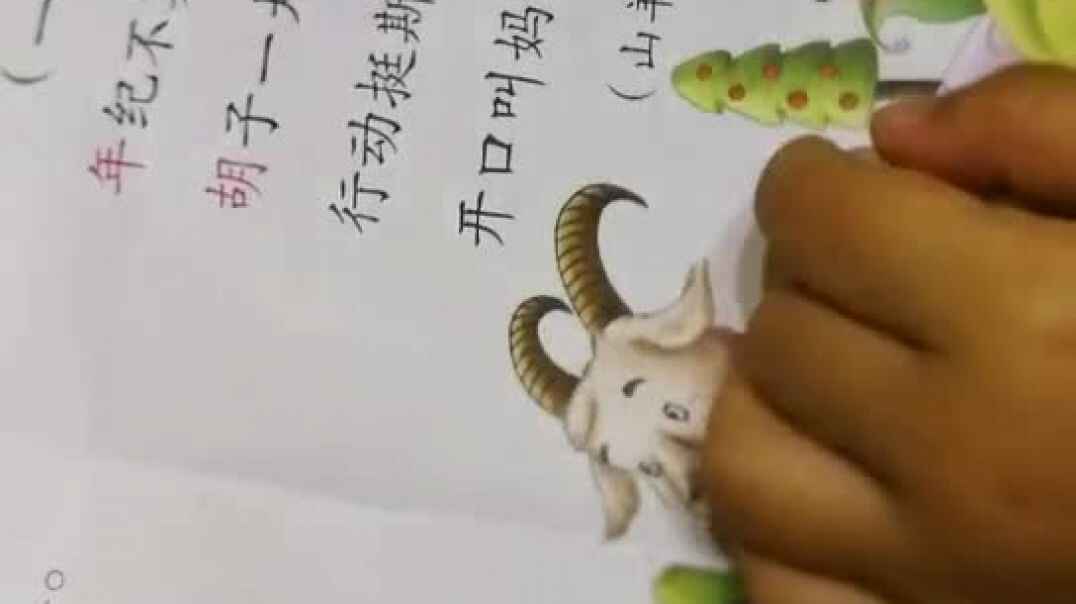 （一
年纪不
胡子一
行动挺斯
开口叫妈
（山羊